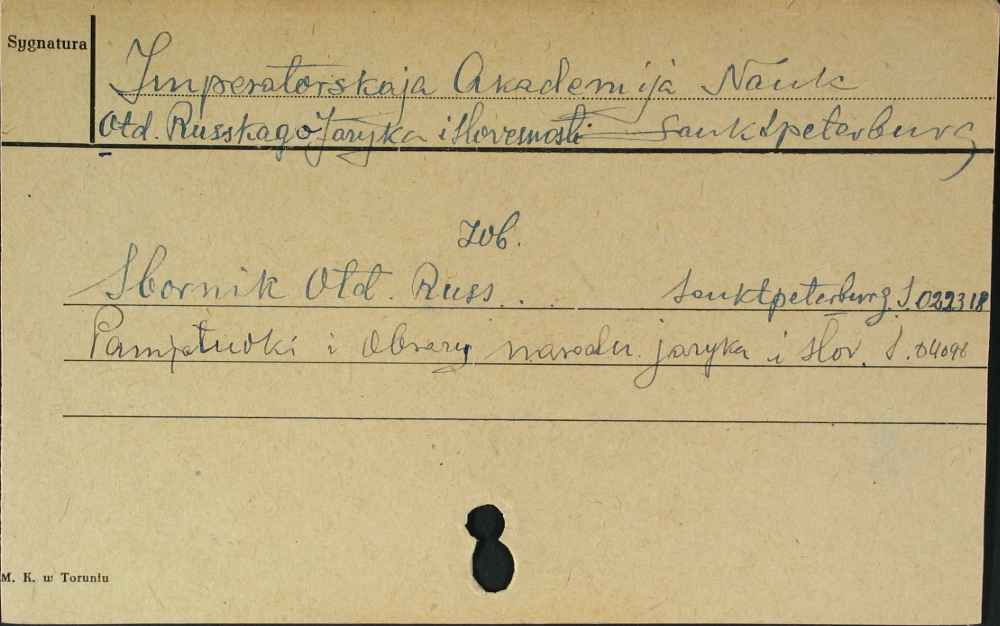 Sygnatura
Imperatorskaja Akademija Nauk
Otd. Russkago Jazyka i Slovesnosti Sanktpeterburg
Zob.
Sbornik Otd. Russ... Sanktpeterburg S.022318
Pamjatniki i Obrazy narodn. jazyka i slov. S.04096
M. K. w Toruniu